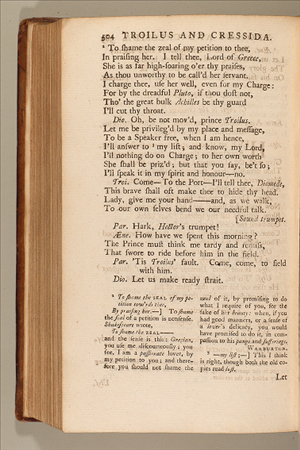 504 TROILUS AND CRESSIDA.
⁸ To ſhame the zeal of my petition to thee,
In praiſing her. I tell thee, Lord of Greece,
She is as far high-ſoaring o'er thy praiſes,
As thou unworthy to be call'd her ſervant.
I charge thee, uſe her well, even for my Charge:
For by the dreadful Pluto, if thou doſt not,
Tho' the great bulk Achilles be thy guard
I'll cut thy throat.
Dio. Oh, be not mov'd, prince Troilus.
Let me be privileg'd by my place and meſſage,
To be a Speaker free, when I am hence,
I'll anſwer to ⁹ my liſt; and know, my Lord,
I'll nothing do on Charge; to her own worth
She ſhall be priz'd; but that you ſay, be't ſo;
I'll ſpeak it in my ſpirit and honour—no.
Troi. Come— To the Port—I'll tell thee, Diomede,
This brave ſhall oft make thee to hide thy head.
Lady, give me your hand——and, as we walk,
To our own ſelves bend we our needful talk.
[Sound trumpet.
Par. Hark, Hector's trumpet!
Æne. How have we ſpent this morning?
The Prince muſt think me tardy and remiſs,
That ſwore to ride before him in the field.
Par. 'Tis Troilus' fault. Come, come, to field
with him.
Dio. Let us make ready ſtrait.
⁸ To ſhame the ZEAL of my pe-
tition tow'rds thee,
By praiſing her.—] To ſhame
the ſeal of a petition is nonſenſe.
Shakeſpeare wrote,
To ſhame the ZEAL——
and the ſenſe is this: Grecian,
you uſe me diſcourteouſly; you
ſee, I am a paſſionate lover, by
my petition to you; and there-
fore you ſhould not ſhame the
zeal of it, by promiſing to do
what I require of you, for the
ſake of her beauty: when, if you
had good manners, or a ſenſe of
a lover's delicacy, you would
have promiſed to do it, in com-
paſſion to his pangs and ſufferings.
WARBURTON.
⁹ —my liſt;—] This I think
is right, though both the old co-
pies read luſt.
Let